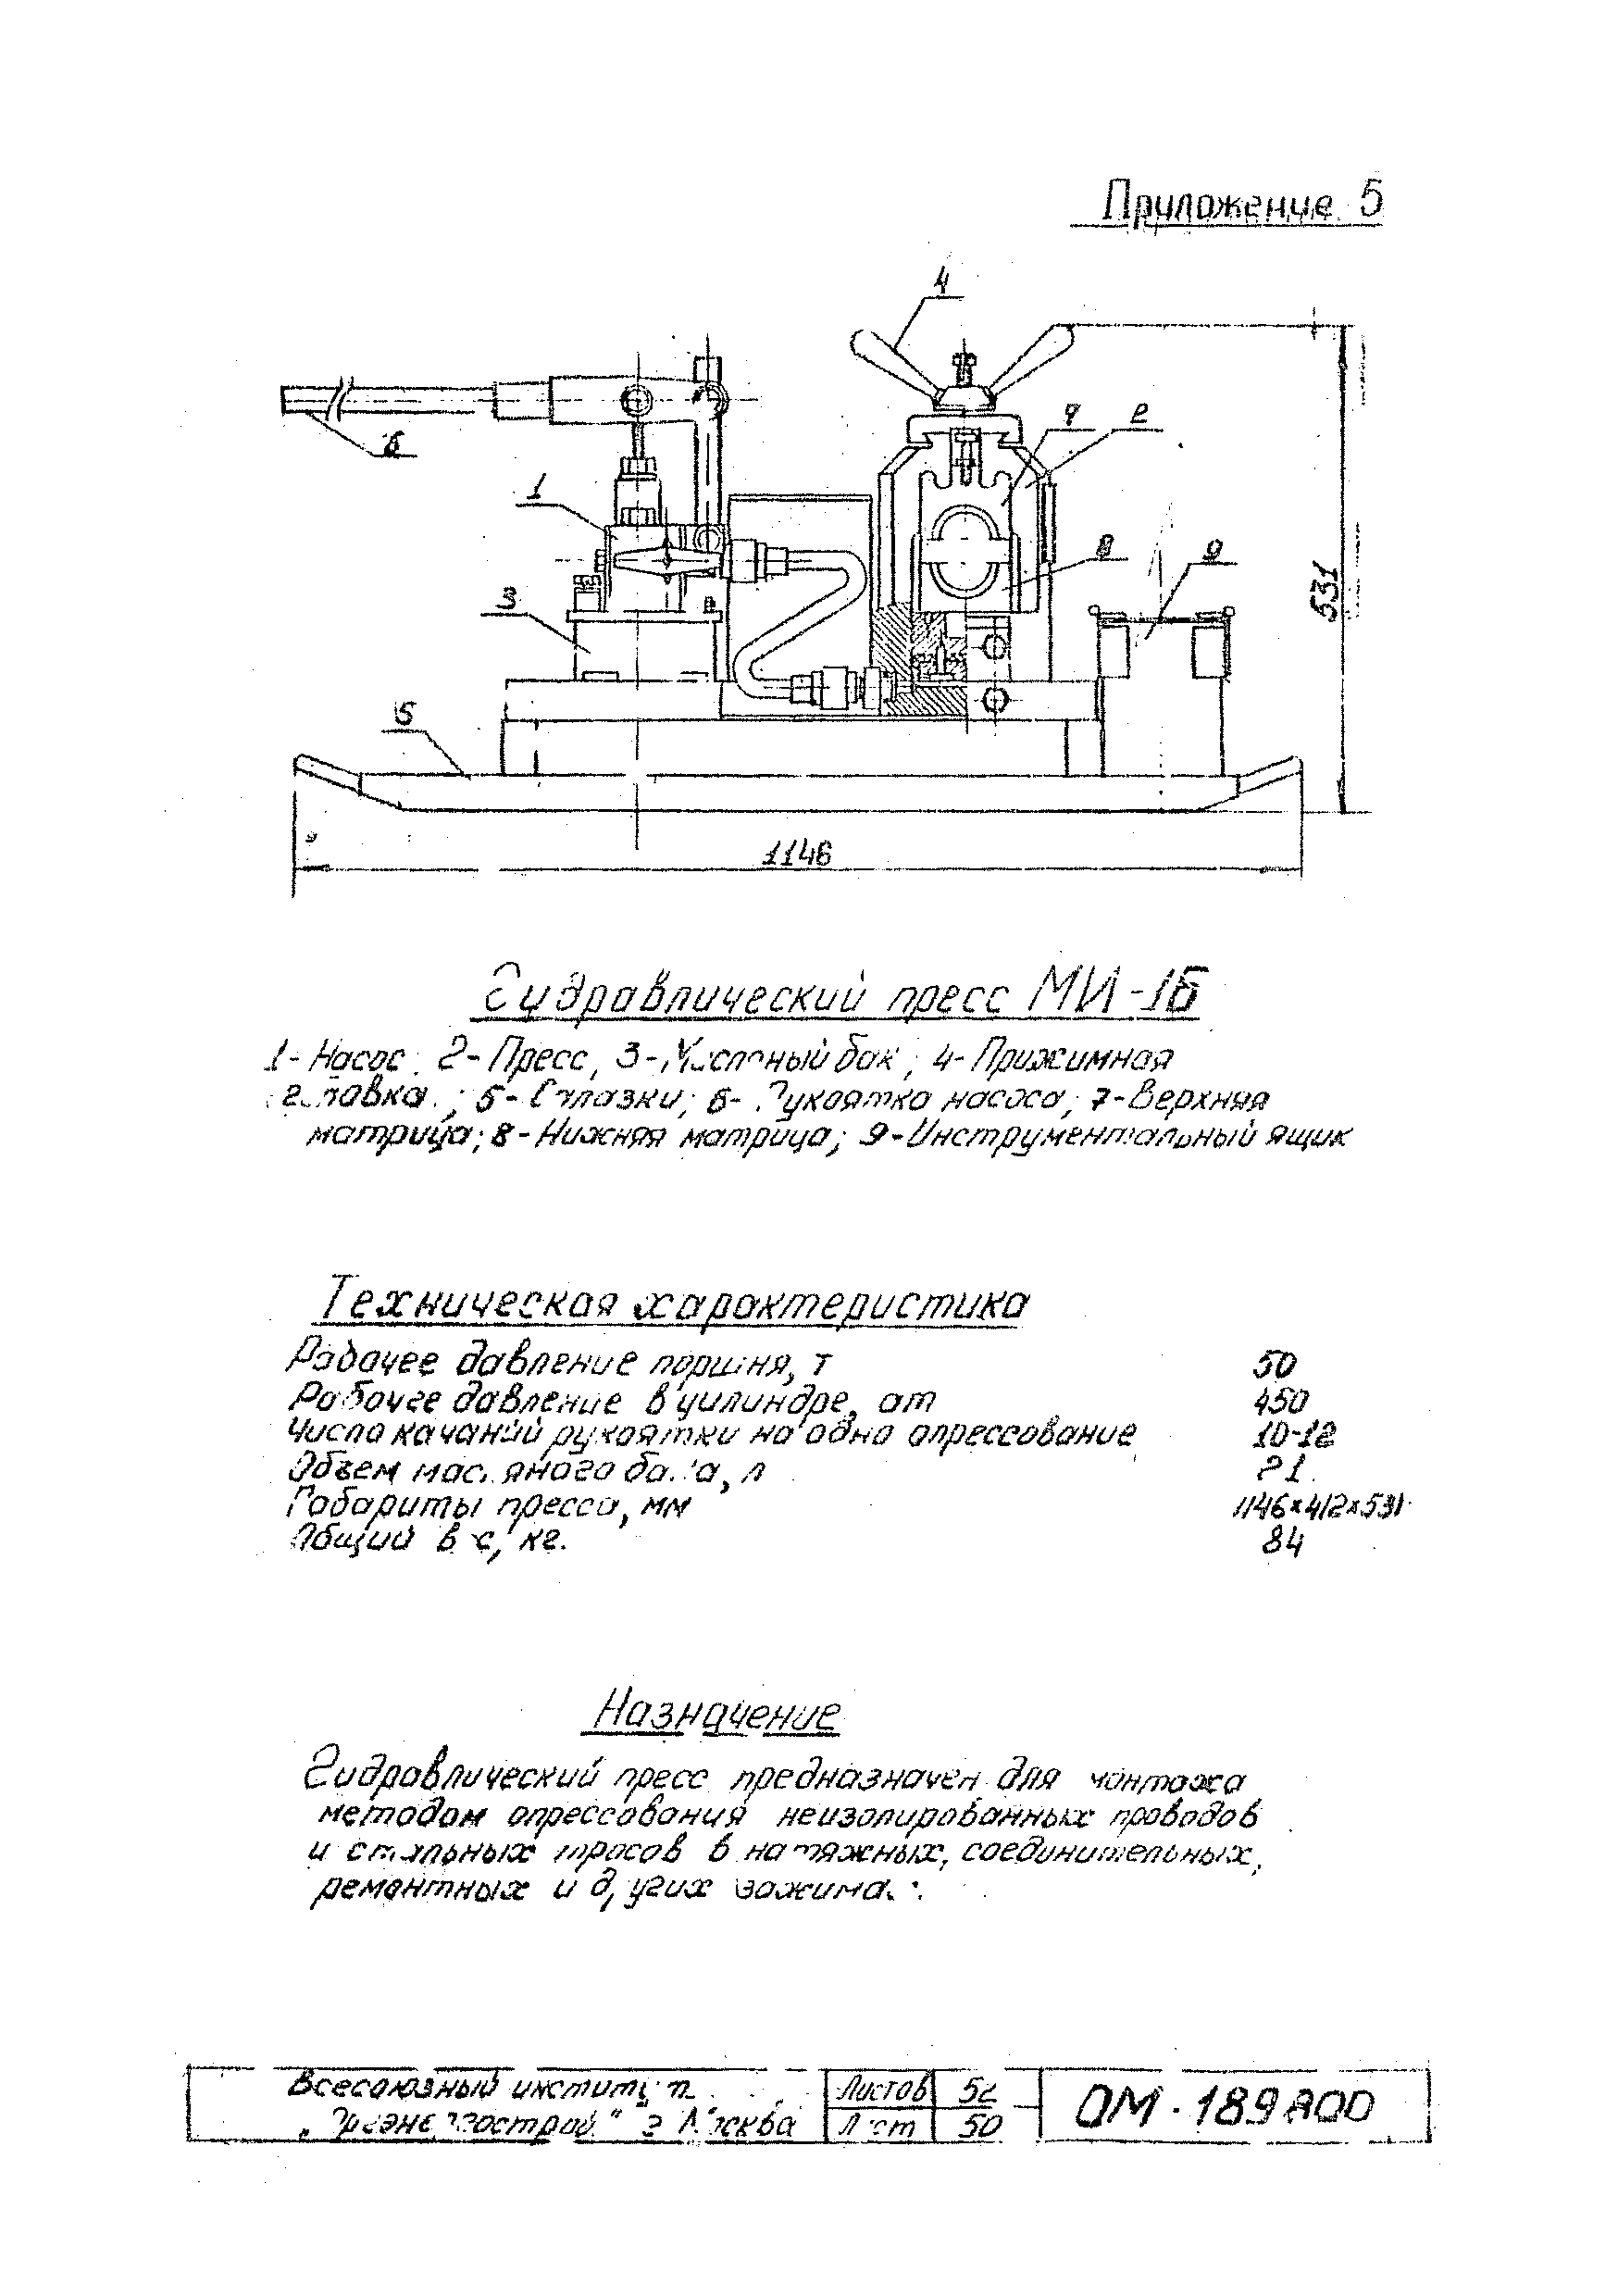 Приложение 5
4
7 2
6
1
8 9
3
531
5
1146
Гидравлический пресс МИ-1Б
1- Насос; 2- Пресс, 3- Масляный бак; 4- Прижимная
головка; 5- Салазки; 6- Рукоятка насоса; 7-Верхняя
матрица; 8-Нижняя матрица; 9-Инструментальный ящик
Техническая характеристика
Рабочее давление поршня, т 50
Рабочее давление в цилиндре, ат 450
Число качаний рукоятки на одно опрессование 10-12
Объем масляного бака, л
Габариты пресса, мм 1146×412×531
Общий вес, кг. 84
Назначение
Гидравлический пресс предназначен для монтажа
методом опрессования неизолированных проводов
и стальных тросов в натяжных, соединительных,
ремонтных и других зажимах.
Всесоюзный институт Листов 52
„Оргэнергострой" г. Москва Лист 50
ОМ-189800